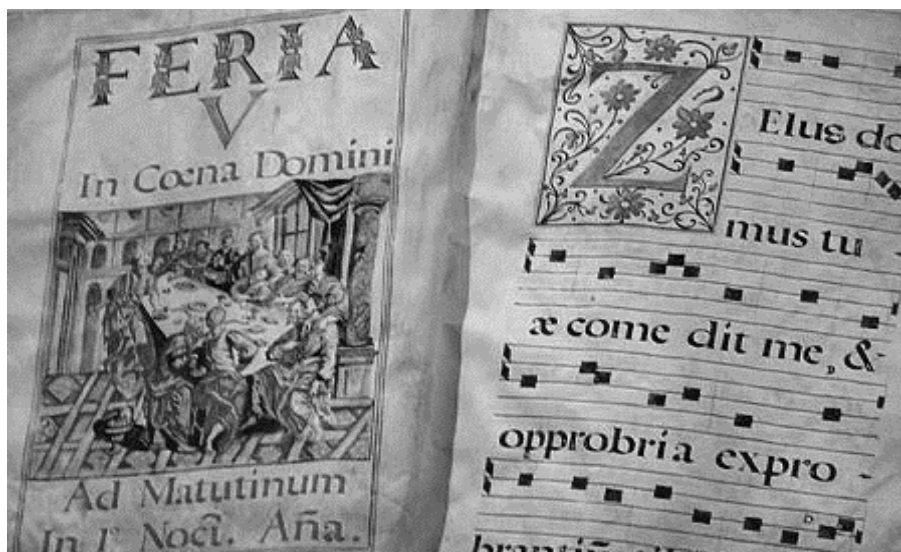 FERIA
V
In Cœna Domini
Ad Matutinum
In 1º Noct. Aña.
Z
Elus do
mus tu -
æ come dit me, &
opprobria expro -